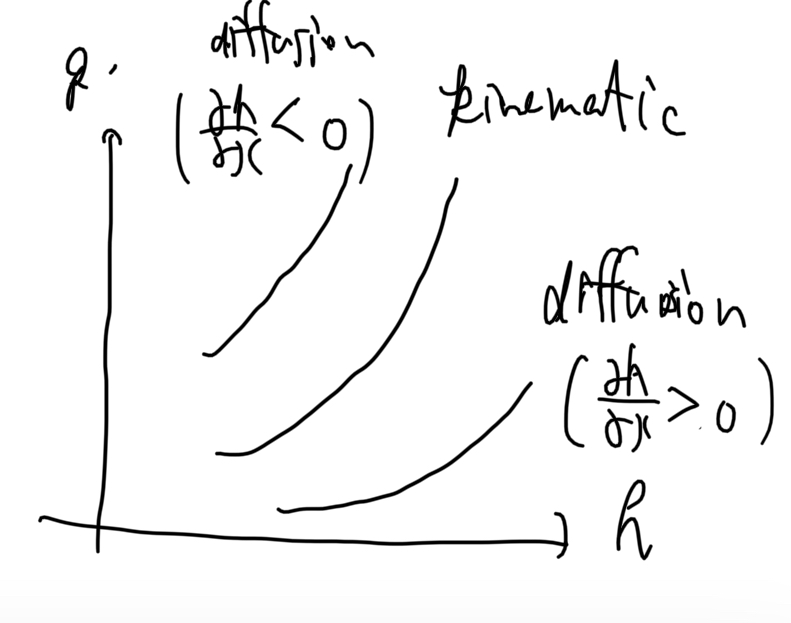 q.
diffusion
(∂h/∂x < 0)
kinematic
diffusion
(∂h/∂x > 0)
h